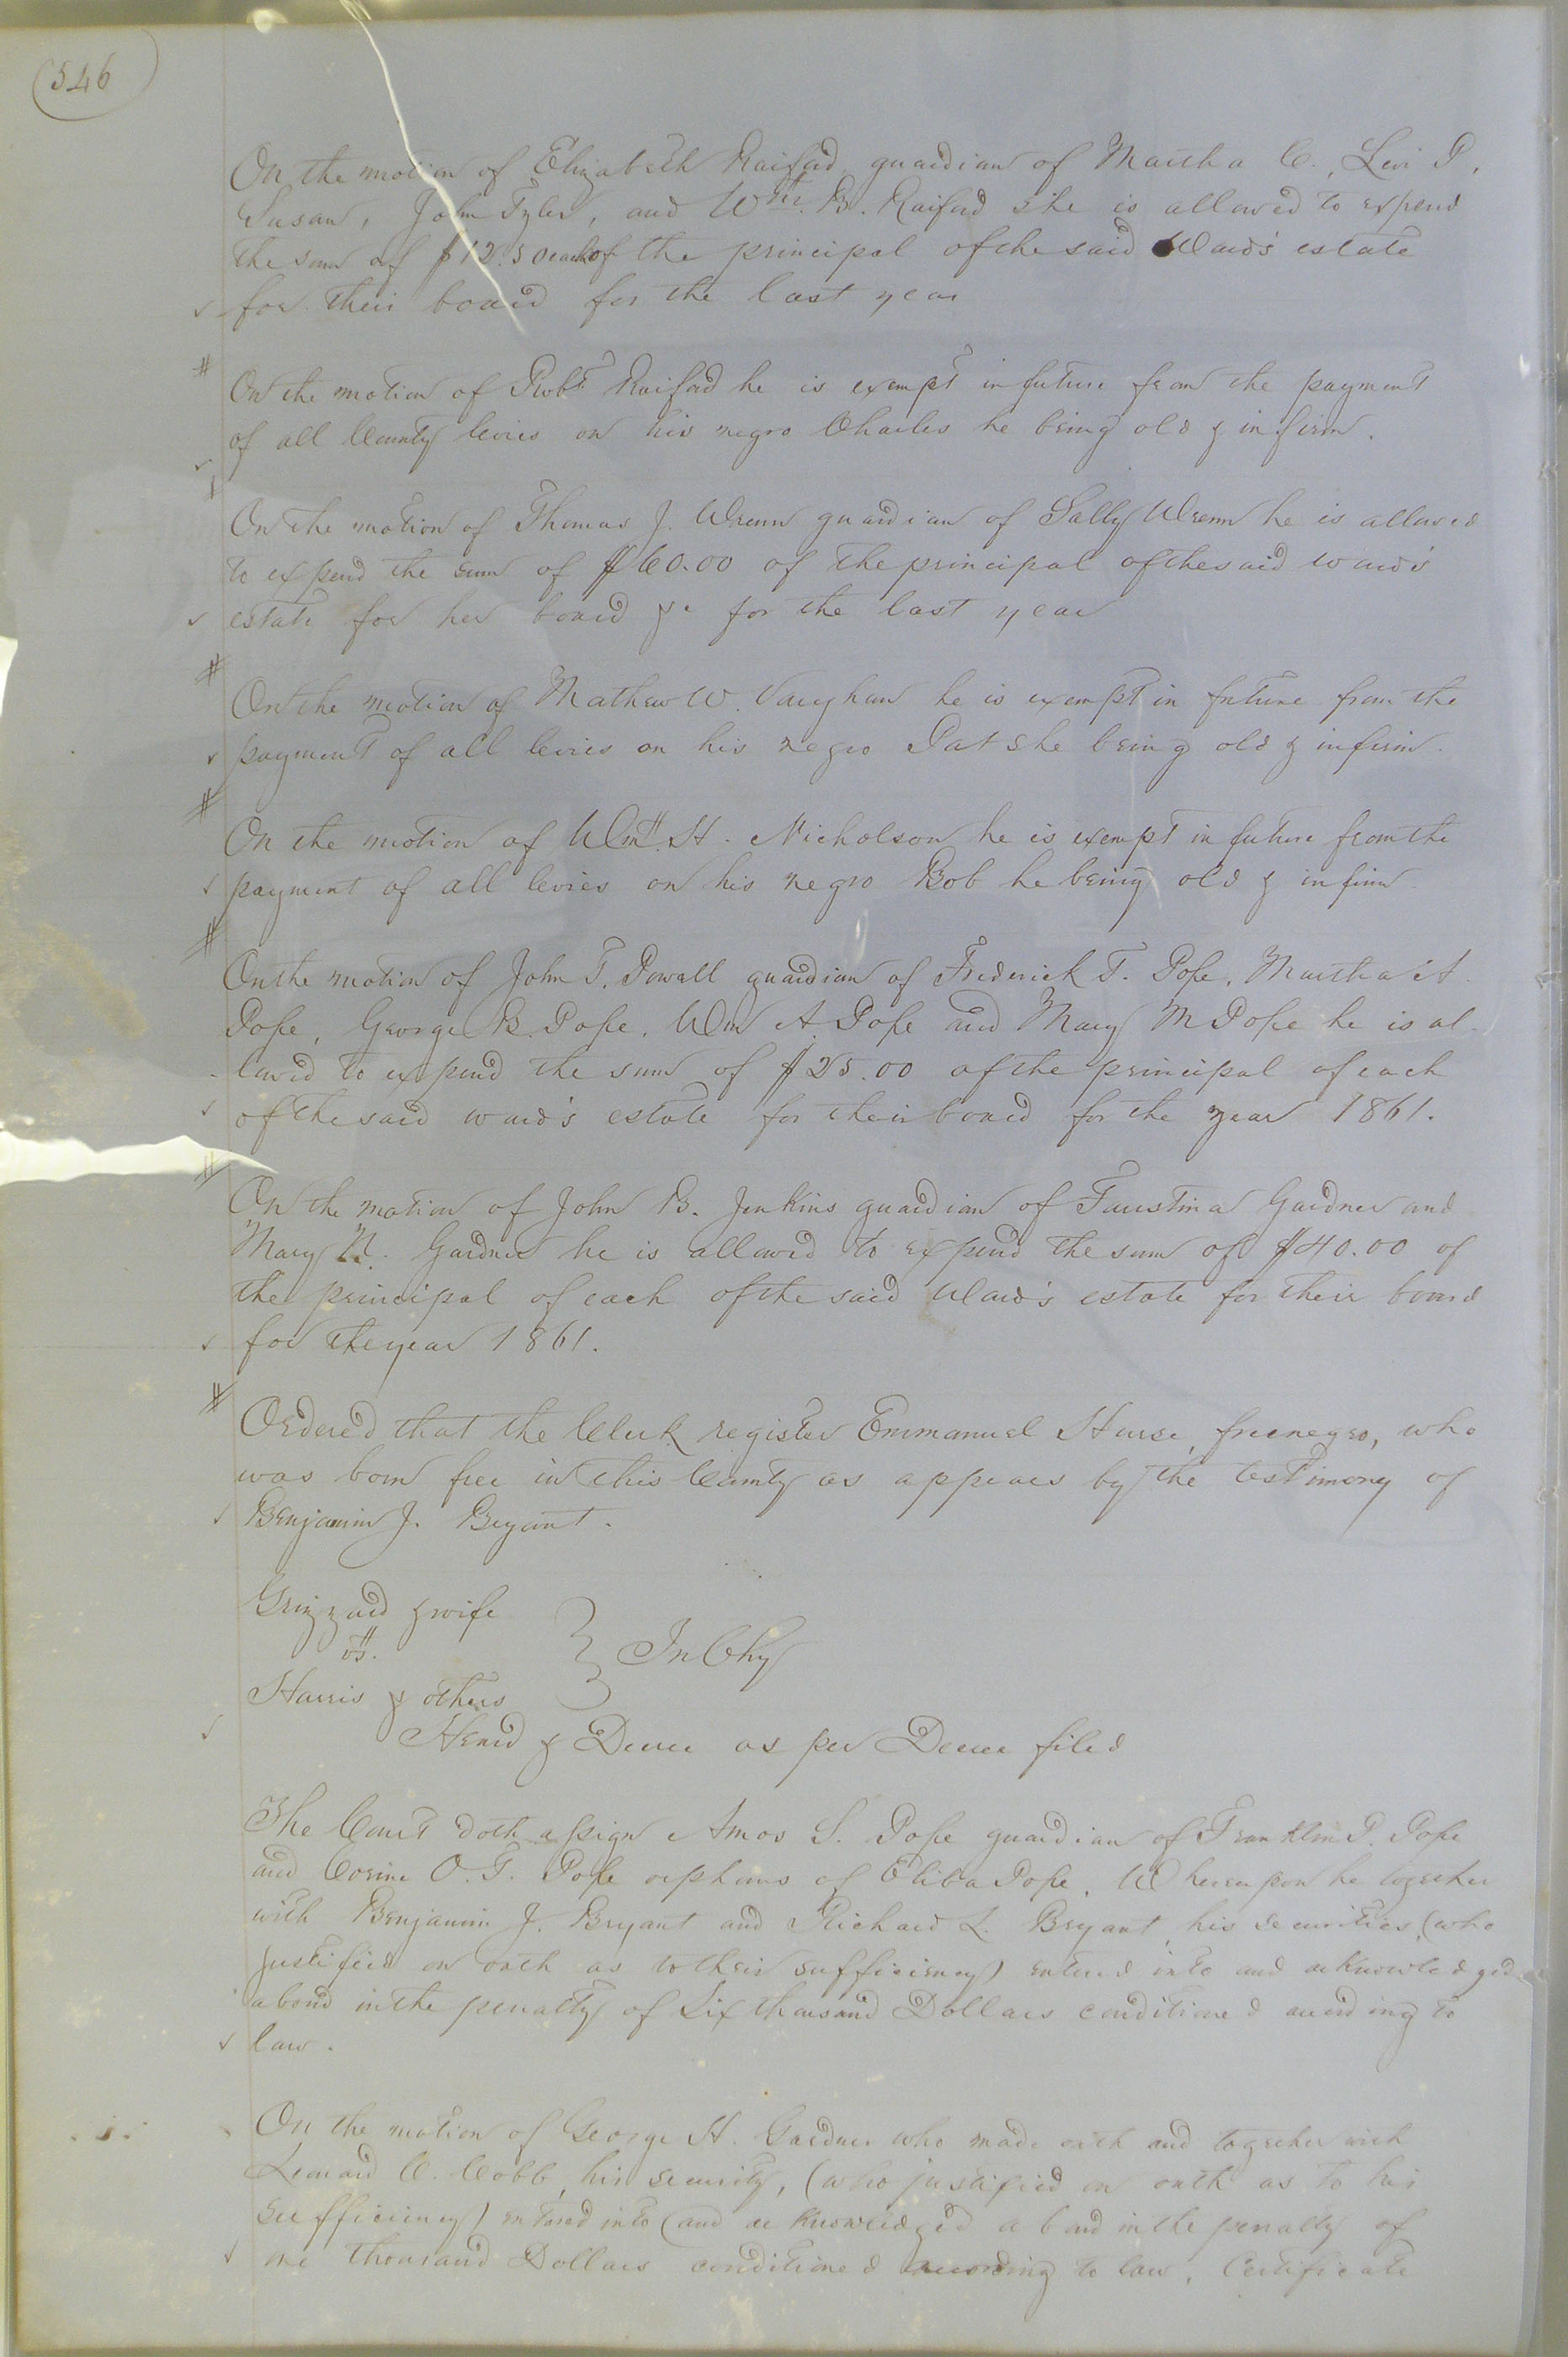 546
On the motion of Elizabeth Raiford guardian of Martha C., Levi P.,
Susan, John Tyler, and Wm. B. Raiford she is allowed to expend
the sum of $12.50 each of the principal of the said Ward's estate
for their board for the last year
On the motion of Robt. Raiford he is exempt in future from the payment
of all County levies on his negro Charles he being old & infirm.
On the motion of Thomas J. Wrenn guardian of Sally Wrenn he is allowed
to expend the sum of $60.00 of the principal of the said ward's
estate for her board &c for the last year
On the motion of Mathew W. Vaughan he is exempt in future from the
payment of all levies on his negro Pat she being old & infirm.
On the motion of Wm. H. Nicholson he is exempt in future from the
payment of all levies on his negro Bob he being old & infirm
On the motion of John T. Powell guardian of Frederick T. Pope, Martha A.
Pope, George B. Pope, Wm A. Pope and Mary M Pope he is al-
-lowed to expend the sum of $25.00 of the principal of each
of the said ward's estate for their board for the year 1861.
On the motion of John B. Jenkins guardian of Faustina Gardner and
Mary N. Gardner he is allowed to expend the sum of $40.00 of
the principal of each of the said Ward's estate for their board
for the year 1861.
Ordered that the Clerk register Emmanuel Hurse, free negro, who
was born free in this County as appears by the testimony of
Benjamin J. Bryant.
Grizzard & wife
vs.
} In Chy
Harris & others
Heard & Decree as per Decree filed
The Court doth assign Amos S. Pope guardian of Franklin P. Pope
and Corine O. T. Pope orphans of Pope. Whereupon he together
with Benjamin J. Bryant and Richard L. Bryant, his securities, (who
justified on oath as to their sufficiency) entered into and acknowledged
a bond in the penalty of Six thousand Dollars conditioned according to
law.
On the motion of George H. Gardner who made oath and together with
Leonard C. Cobb, his security, (who justified on oath as to his
sufficiency) entered into (and acknowledged a bond in the penalty of
one thousand Dollars conditioned according to law, Certificate